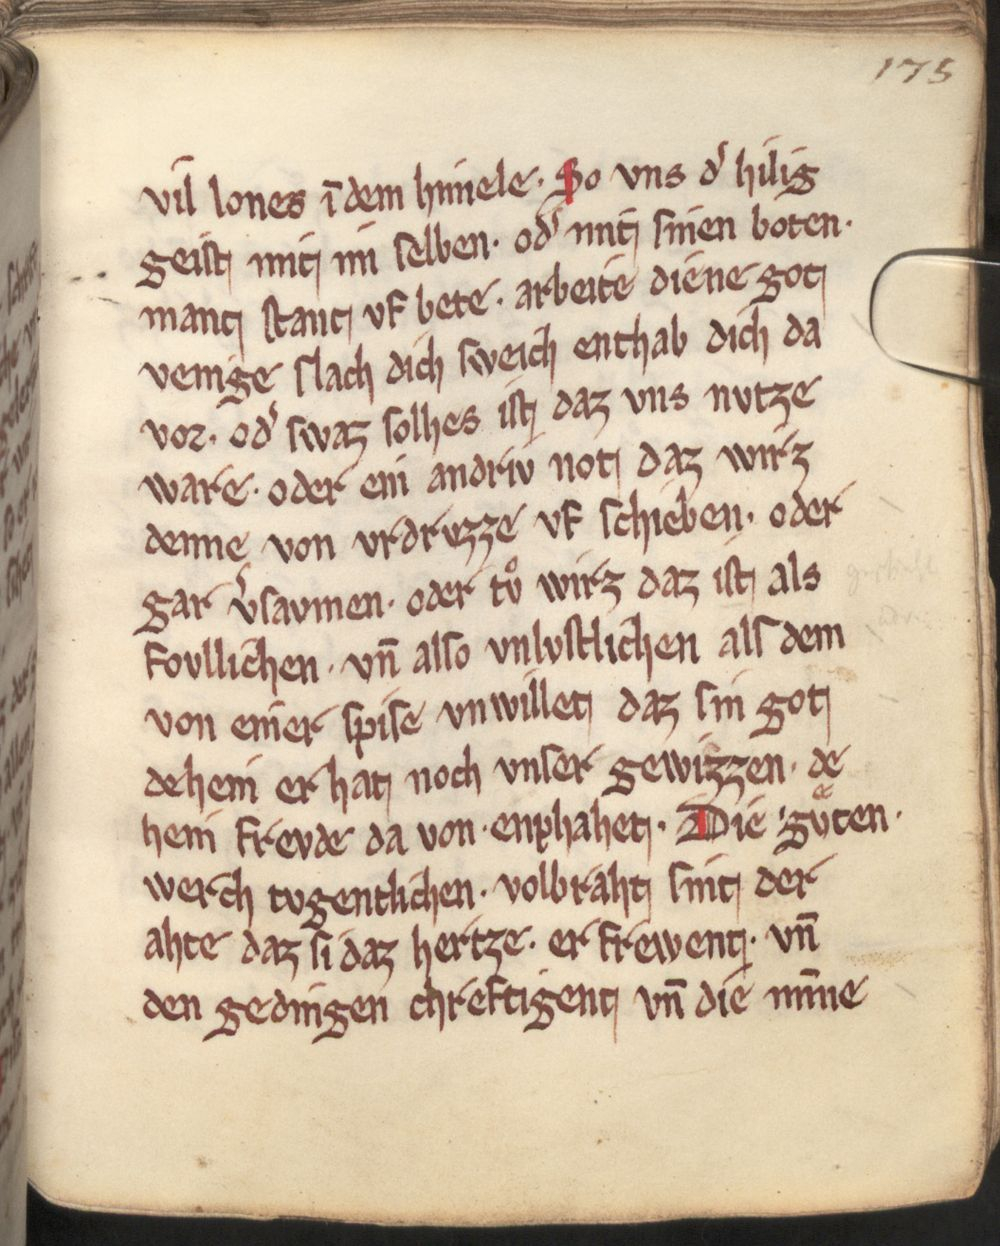 175
vil lones ī dem himele· So vns d̕ hilig
geist mit im selben· od̕ mit sinen boten·
mant stant vf bete· arbeite diene got
venige slach dich sweich enthab dich da
vor· od̕ swaz solhes ist daz vns nvtze
ware· oder ein andriv not daz wirz
denne von vrdrvzze vf schieben· oder
gar v̕savmen· oder tvͦ wirz daz ist als
fovllichen· vn̄ also vnlvstlichen als dem
von einer spise vnwillet daz sin got
dehein er hat noch vnser gewizzen· de
hein frevde da von enphahet· Die gvͤten·
werch tvgentlichen· volbraht sint der
ahte daz si daz hertze· er frewent· vn̄
den gedingen chreftigent vn̄ die mīne